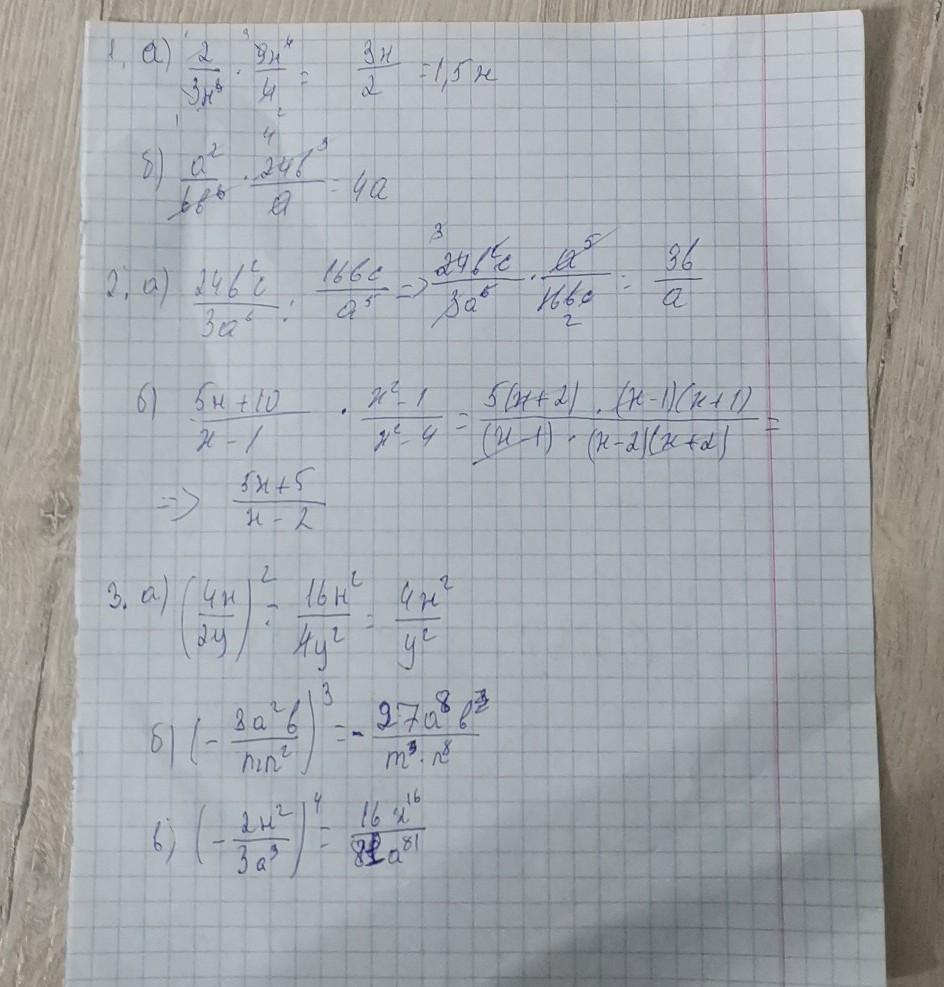 1. а) 2/3x³ · 9x⁴/4 = 3x/2 = 1,5x
б) a²/6b³ · 24b³/a = 4a
2. а) 24b²c/3a⁶ : 16bc/a⁵ => 24b²c/3a⁶ · a⁵/16bc = 3b/a
б) 5x+10/x-1 · x²-1/x²-4 = 5(x+2)·(x-1)(x+1)/(x-1)·(x-2)(x+2) =
=> 5x+5/x-2
3. а) (4x/2y)² = 16x²/4y² = 4x²/y²
б) (- 3a²b/mn²)³ = - 27a⁸b³/m³·n⁸
в) (- 2x²/3a³)⁴ = 16x¹⁶/81a⁸¹